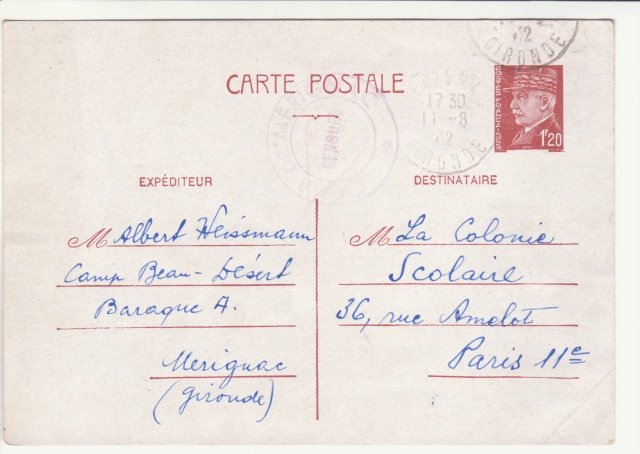 CARTE POSTALE
GIRONDE
POSTES FRANÇAISES
1F20
17 30
11 -8
42
GIRONDE
CENSURE
EXPÉDITEUR
M Albert Weissmann
Camp Beau-Désert
Baraque A.
Merignac
(Gironde)
DESTINATAIRE
M La Colonie
Scolaire
36, rue Amelot
Paris 11e